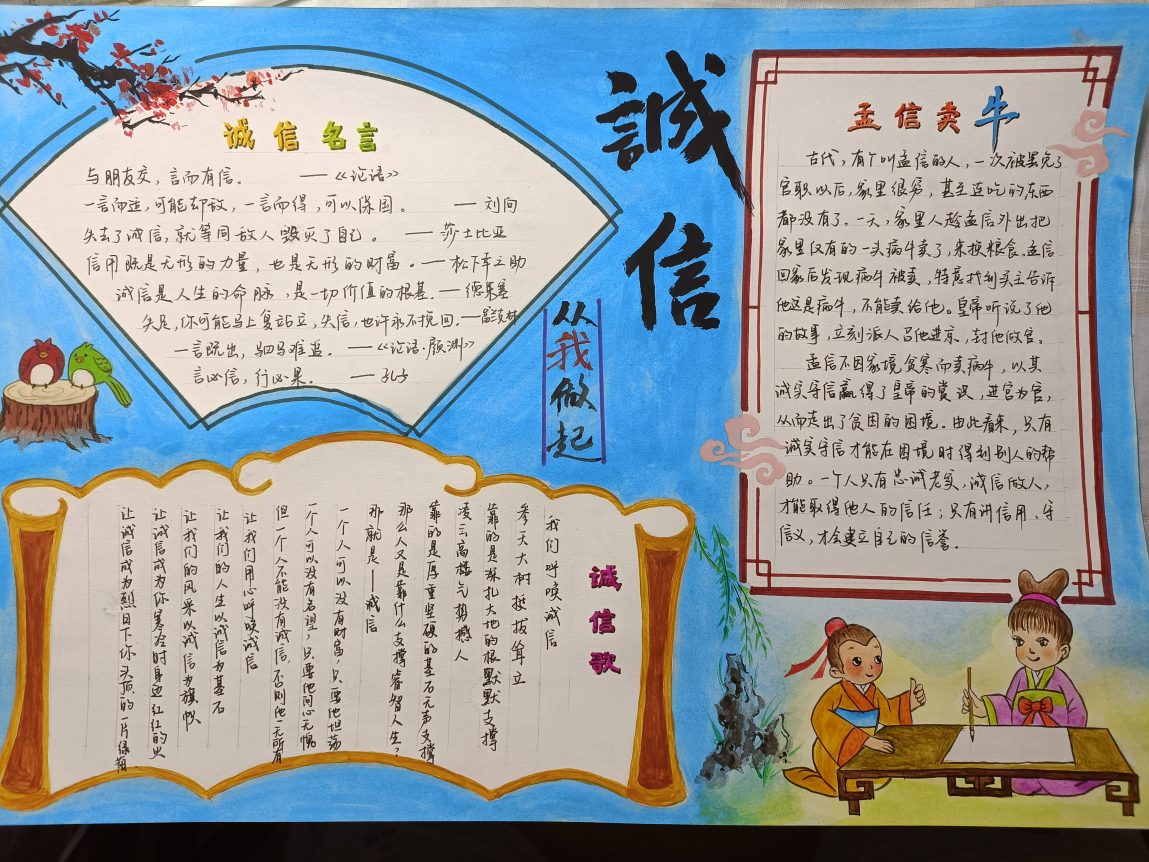 誠信
从我做起
诚信名言
与朋友交，言而有信。 ——《论语》
一言而适，可能却敌，一言而得，可以保国。 ——刘向
失去了诚信，就等同敌人毁灭了自己。 ——莎士比亚
信用既是无形的力量，也是无形的财富。——松下幸之助
诚信是人生的命脉，是一切价值的根基。——德莱赛
失足，你可能马上复站立，失信，也许永不挽回。——富兰克林
一言既出，驷马难追。——《论语·颜渊》
言必信，行必果。 ——孔子
孟信卖牛
古代，有个叫孟信的人，一次被罢免了
官职以后，家里很穷，甚至连吃的东西
都没有了。一天，家里人趁孟信外出把
家里仅有的一头病牛卖了，来换粮食。孟信
回家后发现病牛被卖，特意找到买主告诉
他这是病牛，不能卖给他。皇帝听说了他
的故事，立刻派人召他进京，封他做官。
孟信不因家境贫寒而卖病牛，以其
诚实守信赢得了皇帝的赏识，进宫为官，
从而走出了贫困的困境。由此看来，只有
诚实守信才能在困境时得到别人的帮
助。一个人只有忠诚老实，诚信做人，
才能取得他人的信任；只有讲信用、守
信义，才会建立自己的信誉。
诚信歌
我们呼唤诚信
参天大树挺拔耸立
靠的是深扎大地的根默默支撑
凌云高楼气势撼人
靠的是厚重坚硬的基石无声支撑
那么人又是靠什么支撑睿智人生？
那就是——诚信
一个人可以没有财富，只要他坦荡
一个人可以没有名望，只要他问心无愧
但一个人不能没有诚信，否则他一无所有
让我们用心呼唤诚信
让我们的人生以诚信为基石
让我们的风采以诚信为旗帜
让诚信成为你寒冷时身边红红的火
让诚信成为烈日下你头顶的一片绿荫